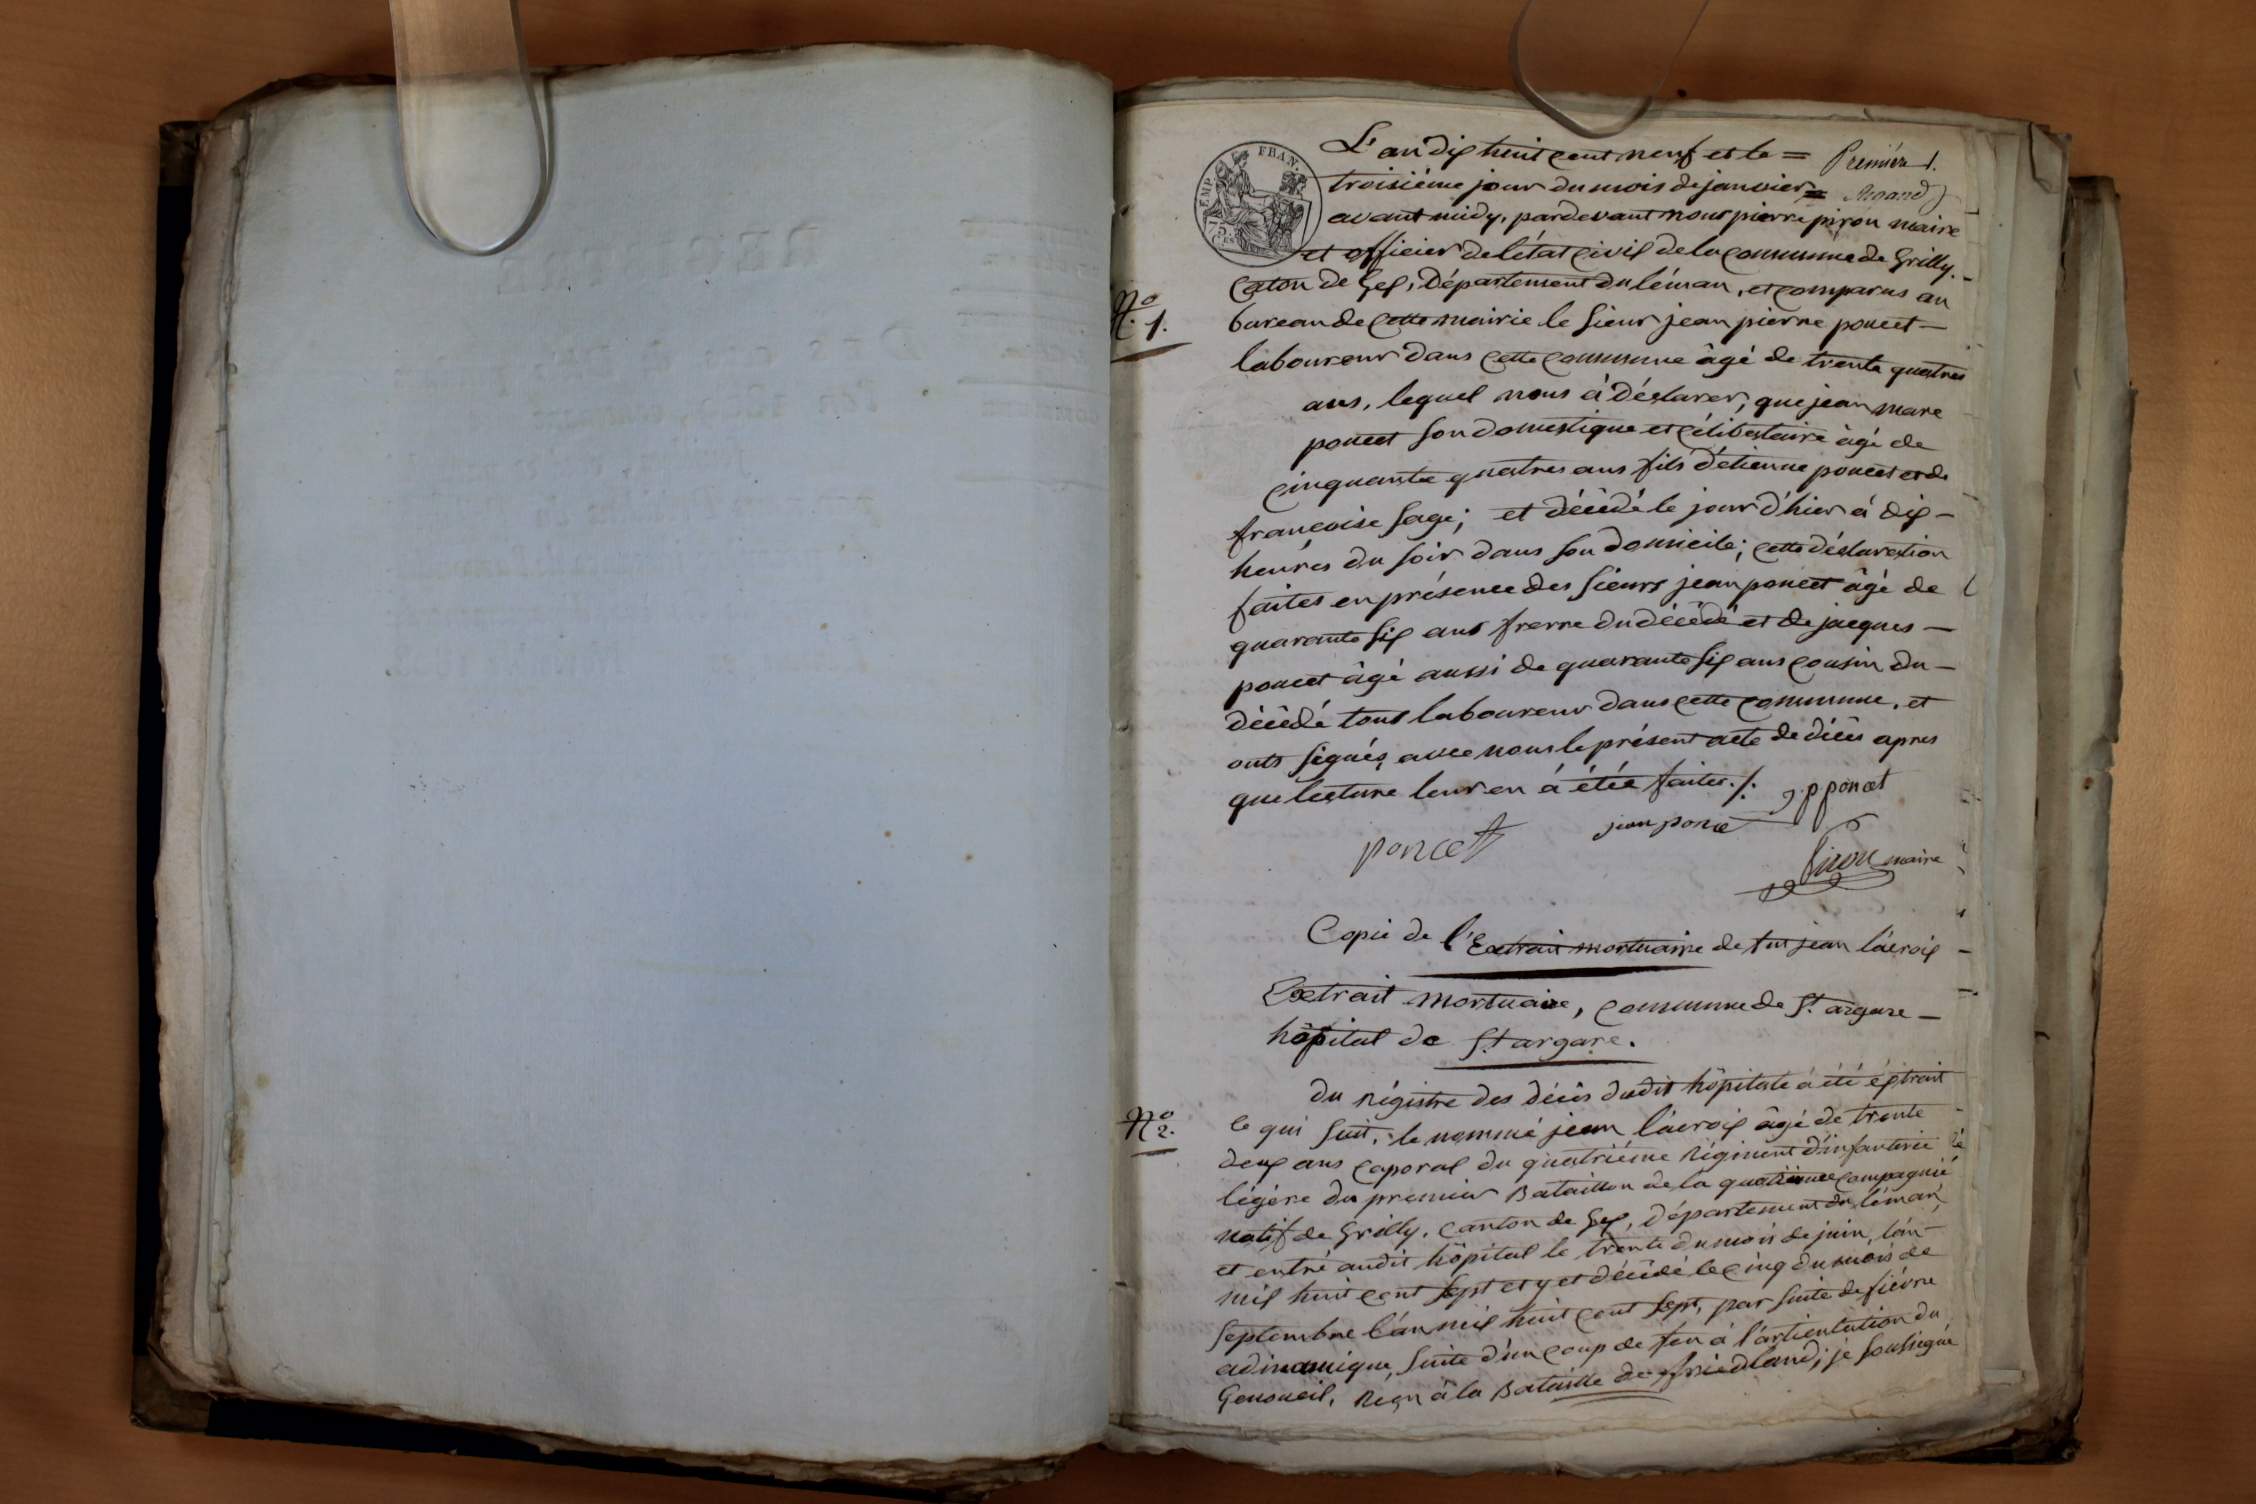 EMP. FRAN.
75.
CES
Première 1.
L'an dix huit cent neuf et le =
troisiéme jour du mois de janvier =
avant midy, pardevant nous pierre piron maire
et officier de l'état civil de la commune de Grilly.
Caton de Gex, Département du léman, et comparus au
N.o 1.
bureau de cette mairie le sieur jean pierre poncet —
laboureur dans cette commune âgé de trente quatres
ans, lequel nous à déclarer, que jean marc
poncet son domestique et célibataire âgé de
cinquante quatres ans fils d'étienne poncet et de
francoise sage; et décédé le jour d'hier à dix —
heures du soir dans son domicile; cette déclaration
faites en présence des sieurs jean poncet âgé de
quarante six ans frerre du décédé et de jacques —
poncet âgé aussi de quarante six ans cousin du —
décédé tous laboureur dans cette commune, et
onts signés avec nous le présent acte de décès apres
que lecture leur en à étée faites ./.
j. p. poncet
jean ponce
poncet
Piron maire
Copie de l'Extrait mortuaire de feu jean lácroix —
Extrait mortuaire, commune de St. argare —
hôpital de St. argare.
du régistre des décès dudit hôpitale à été éxtrait
N.o 2.
le qui suit, le nommé jean lácroix âgé de trente
deux ans caporal du quatriéme Régiment d'infanterie
légére du premier Bataillon de la quatriéme compagnié
natif de Grilly, canton de Gex, département du léman,
et entré audit hôpital le trente du mois de juin, l'an —
mil huit cent sept et y et décédé le cinq du mois de
septembre l'an mil huit cent sept, par suite de fiévre
adinamique, suite d'un coup de feu à l'articulation du
Genoueil, Reçu à la Bataille de friedland; je soussigné